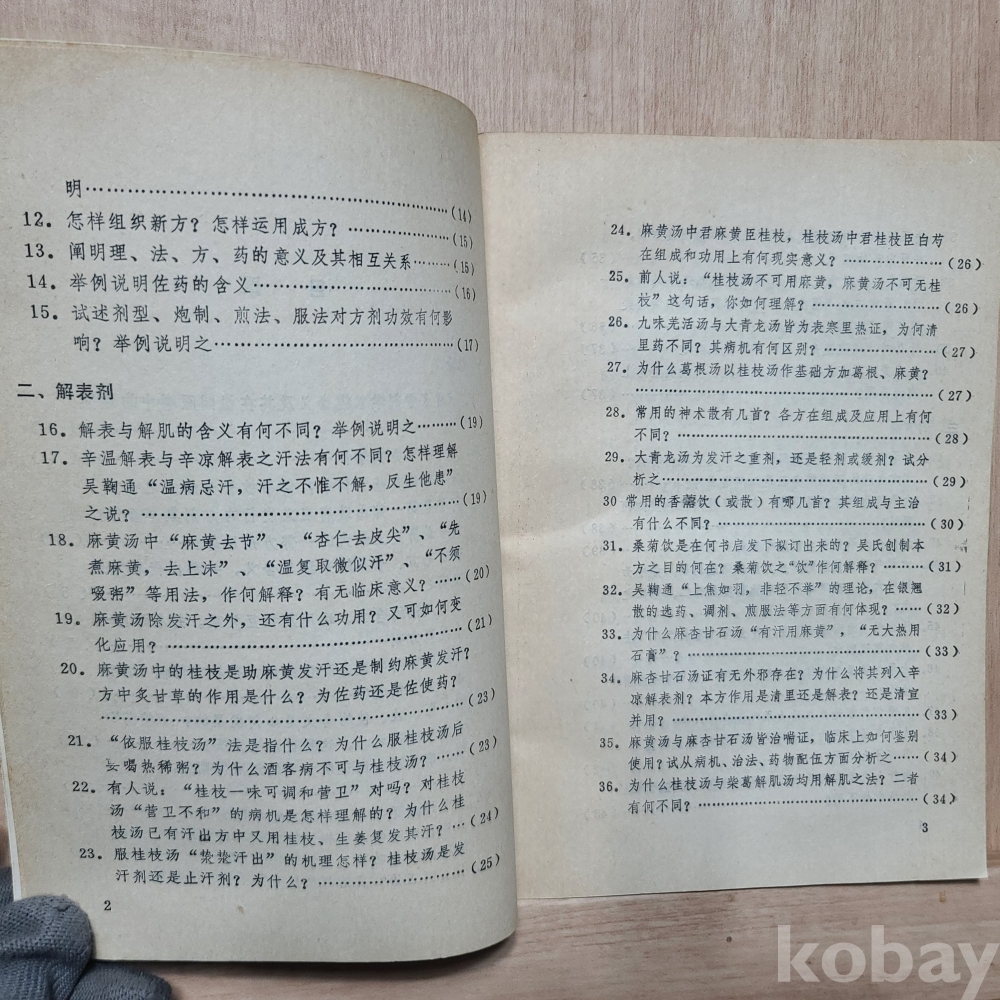 明……………………………………………(14)
12. 怎样组织新方？怎样运用成方？……………(15)
13. 阐明理、法、方、药的意义及其相互关系………(15)
14. 举例说明佐药的含义…………………………(16)
15. 试述剂型、炮制、煎法、服法对方剂功效有何影
响？举例说明之………………………………(17)
二、解表剂
16. 解表与解肌的含义有何不同？举例说明之………(19)
17. 辛温解表与辛凉解表之汗法有何不同？怎样理解
吴鞠通“温病忌汗，汗之不惟不解，反生他患”
之说？…………………………………………(19)
18. 麻黄汤中“麻黄去节”、“杏仁去皮尖”、“先
煮麻黄，去上沫”、“温复取微似汗”、“不须
啜粥”等用法，作何解释？有无临床意义？……(20)
19. 麻黄汤除发汗之外，还有什么功用？又可如何变
化应用？………………………………………(21)
20. 麻黄汤中的桂枝是助麻黄发汗还是制约麻黄发汗？
方中炙甘草的作用是什么？为佐药还是佐使药？
……………………………………………………(23)
21. “依服桂枝汤”法是指什么？为什么服桂枝汤后
要喝热稀粥？为什么酒客病不可与桂枝汤？……(23)
22. 有人说：“桂枝一味可调和营卫”对吗？对桂枝
汤“营卫不和”的病机是怎样理解的？为什么桂
枝汤已有汗出方中又用桂枝、生姜复发其汗？…(24)
23. 服桂枝汤“漐漐汗出”的机理怎样？桂枝汤是发
汗剂还是止汗剂？为什么？……………………(25)
2
24. 麻黄汤中君麻黄臣桂枝，桂枝汤中君桂枝臣白芍
在组成和功用上有何现实意义？………………(26)
25. 前人说：“桂枝汤不可用麻黄，麻黄汤不可无桂
枝”这句话，你如何理解？……………………(26)
26. 九味羌活汤与大青龙汤皆为表寒里热证，为何清
里药不同？其病机有何区别？…………………(27)
27. 为什么葛根汤以桂枝汤作基础方加葛根、麻黄？
……………………………………………………(27)
28. 常用的神术散有几首？各方在组成及应用上有何
不同？…………………………………………(28)
29. 大青龙汤为发汗之重剂，还是轻剂或缓剂？试分
析之……………………………………………(29)
30 常用的香薷饮（或散）有哪几首？其组成与主治
有什么不同？…………………………………(30)
31. 桑菊饮是在何书启发下拟订出来的？吴氏创制本
方之目的何在？桑菊饮之“饮”作何解释？………(31)
32. 吴鞠通“上焦如羽，非轻不举”的理论，在银翘
散的选药、调剂、煎服法等方面有何体现？……(32)
33. 为什么麻杏甘石汤“有汗用麻黄”，“无大热用
石膏”？………………………………………(33)
34. 麻杏甘石汤证有无外邪存在？为什么将其列入辛
凉解表剂？本方作用是清里还是解表？还是清宣
并用？…………………………………………(33)
35. 麻黄汤与麻杏甘石汤皆治喘证，临床上如何鉴别
使用？试从病机、治法、药物配伍方面分析之……(34)
36. 为什么桂枝汤与柴葛解肌汤均用解肌之法？二者
有何不同？……………………………………(34)
3
kobay